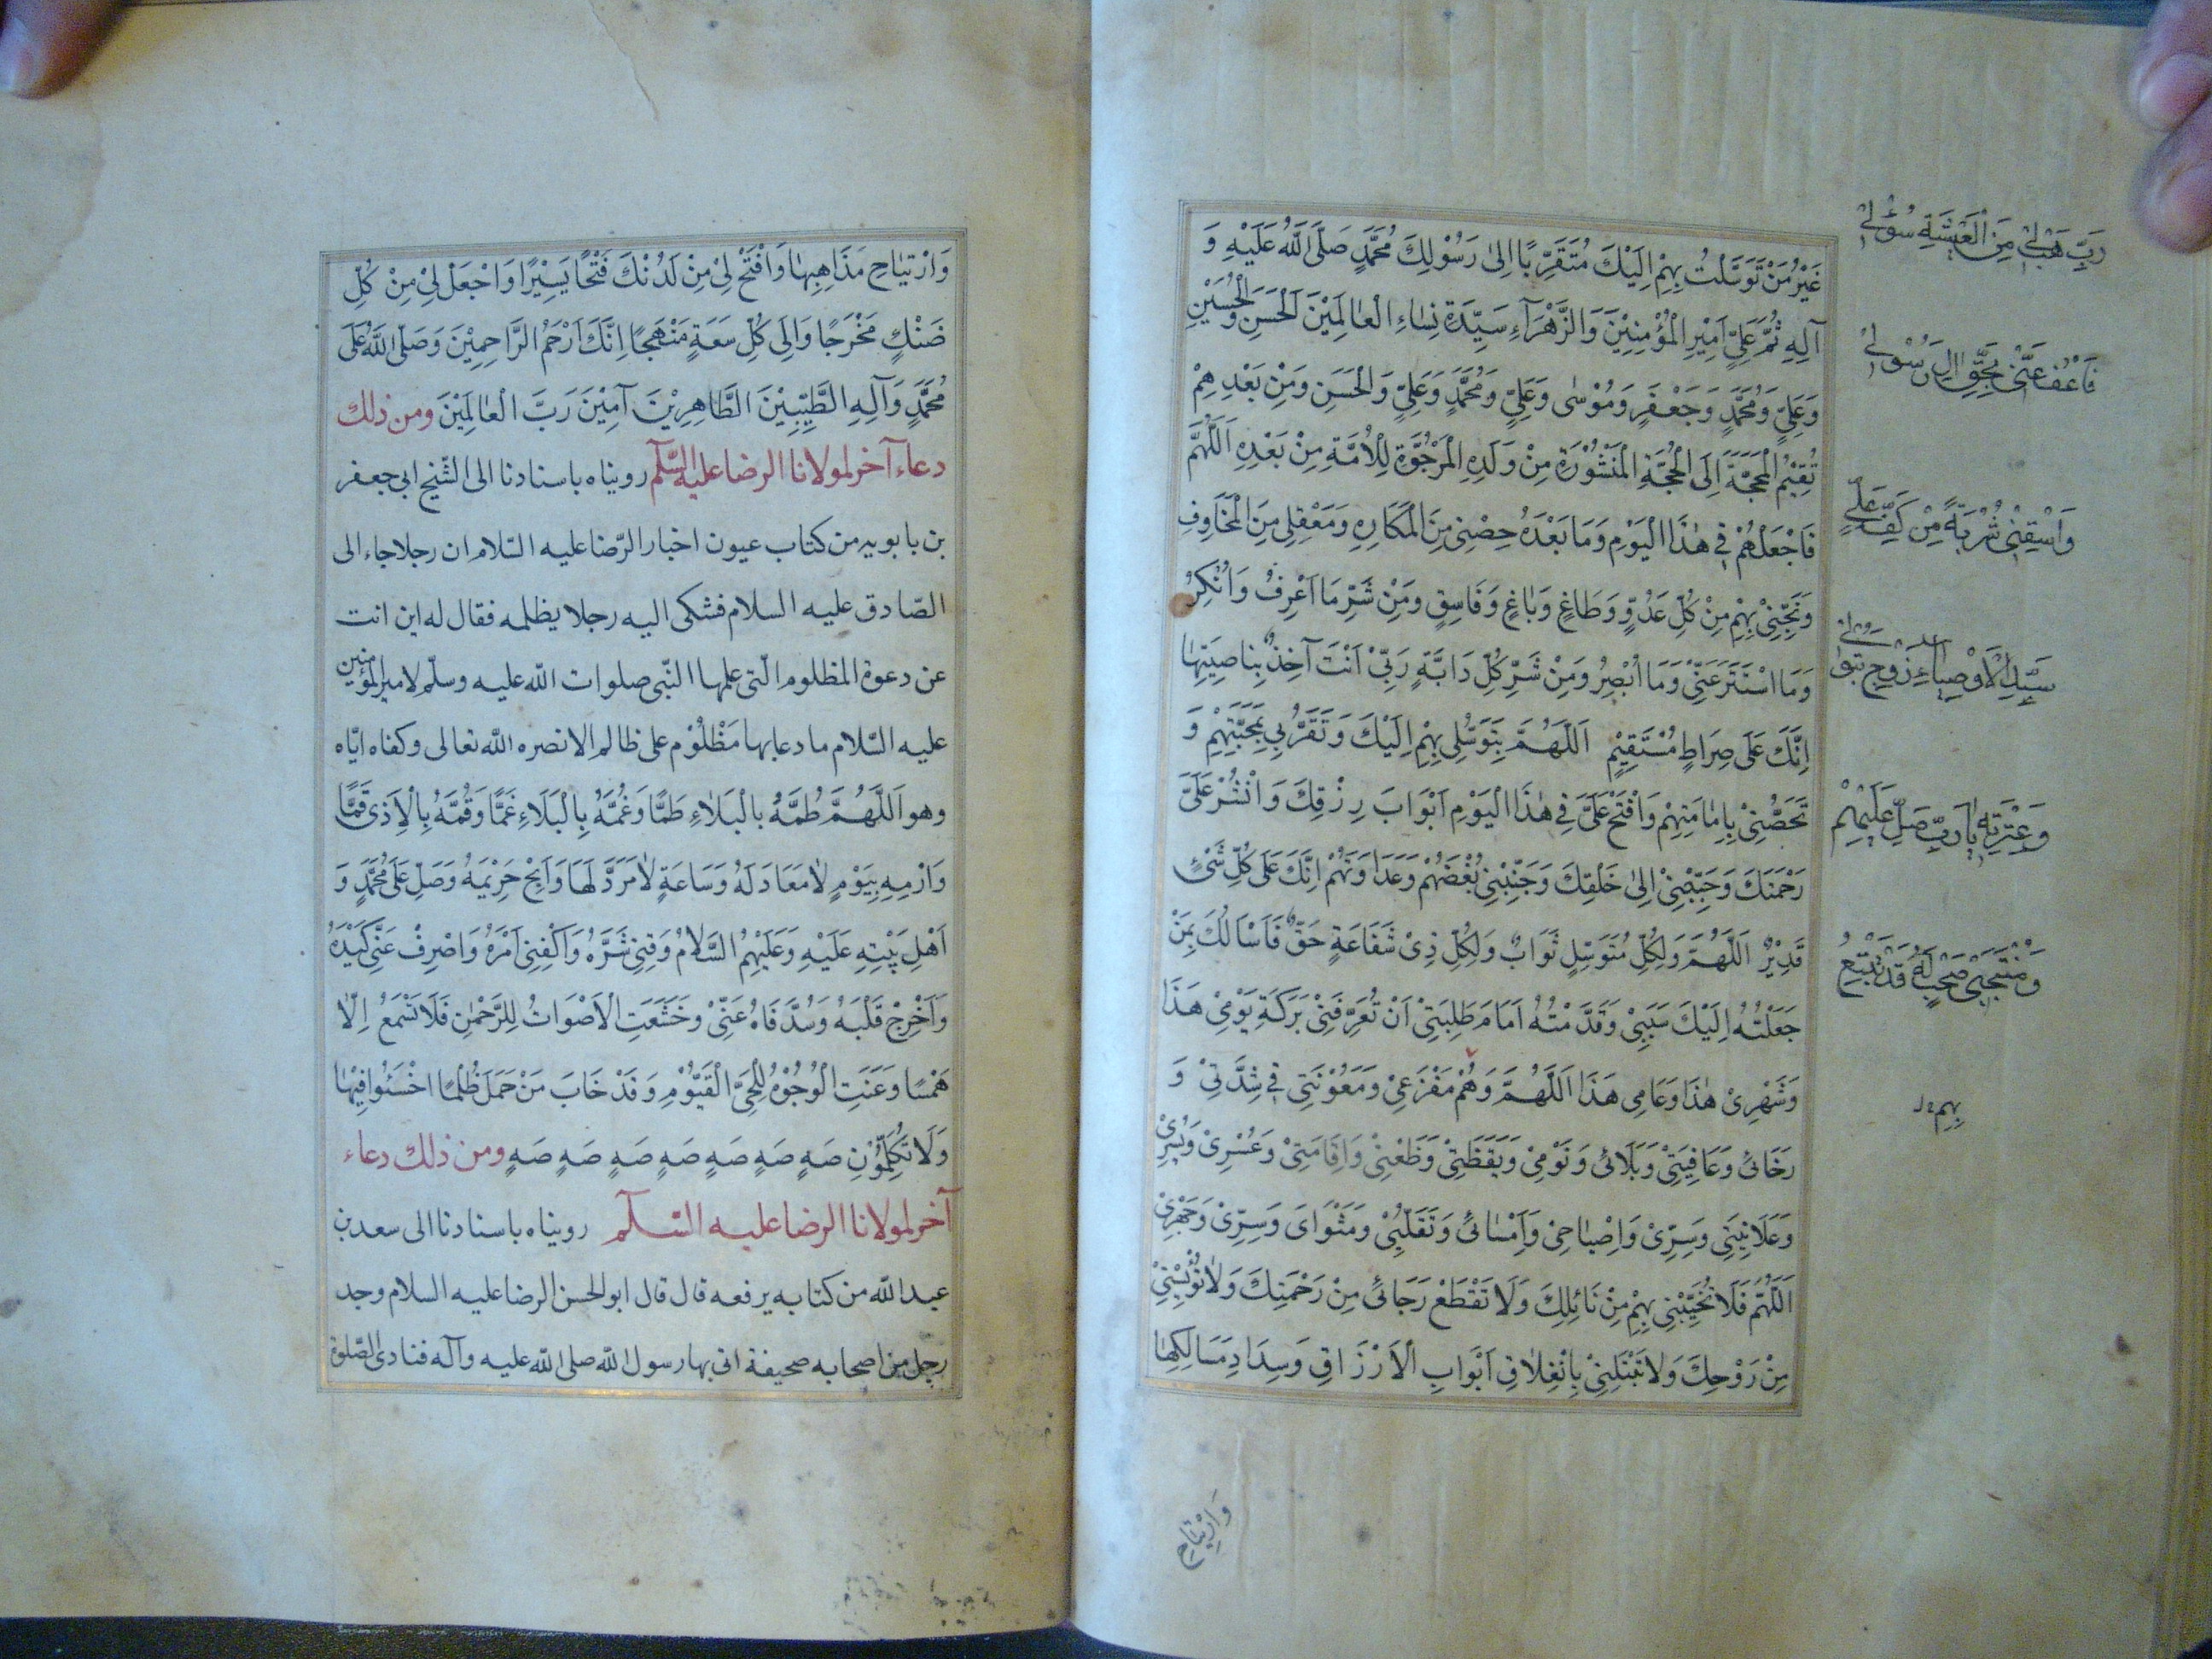 غَيْرُ مَنْ تَوَسَّلْتُ بِهِمْ اِلَيْكَ مُتَقَرِّبًا اِلىٰ رَسُوْلِكَ مُحَمَّدٍ صَلَّى اللّٰهُ عَلَيْهِ وَ
آلِهِ ثُمَّ عَلِيٍّ اَمِيْرِ الْمُؤْمِنِيْنَ وَالزَّهْرَآءِ سَيِّدَةِ نِسَاءِ الْعٰالَمِيْنَ اَلْحَسَنِ وَالْحُسَيْنِ
وَعَلِيٍّ وَمُحَمَّدٍ وَجَعْفَرٍ وَمُوْسٰى وَعَلِيٍّ وَمُحَمَّدٍ وَعَلِيٍّ وَالْحَسَنِ وَمَنْ بَعْدَهُمْ
تُقِيْمُ الْمَحَجَّةَ اِلَى الْحُجَّةِ الْمَنْشُوْرَةِ مِنْ وَلَدِهِ الْمَرْجُوَّةِ لِلْاُمَّةِ مِنْ بَعْدِهِ اَللّٰهُمَّ
فَاجْعَلْهُمْ فِي هٰذَا الْيَوْمِ وَمَا بَعْدَهُ حِصْنِى مِنَ الْمَكَارِهِ وَمَعْقِلِى مِنَ الْمَخَاوِفِ
وَنَجِّنِىْ بِهِمْ مِنْ كُلِّ عَدُوٍّ وَطَاغٍ وَبَاغٍ وَفَاسِقٍ وَمِنْ شَرِّ مَا اَعْرِفُ وَاُنْكِرُ
وَمَا اسْتَتَرَ عَنِّىْ وَمَا اُبْصِرُ وَمِنْ شَرِّ كُلِّ دَابَّةٍ رَبِّىْ اَنْتَ آخِذٌ بِنَاصِيَتِهٰا
اِنَّكَ عَلَى صِرَاطٍ مُسْتَقِيْمٍ اَللّٰهُمَّ بِتَوَسُّلِى بِهِمْ اِلَيْكَ وَتَقَرُّبِى بِمَحَبَّتِهِمْ وَ
تَحَصُّنِىْ بِاِمَامَتِهِمْ وَافْتَحْ عَلَىَّ فِى هٰذَا الْيَوْمِ اَبْوَابَ رِزْقِكَ وَانْشُرْ عَلَىَّ
رَحْمَتَكَ وَحَبِّبْنِىْ اِلىٰ خَلْقِكَ وَجَنِّبْنِىْ بُغْضَهُمْ وَعَدَاوَتَهُمْ اِنَّكَ عَلَى كُلِّ شَىْءٍ
قَدِيْرٌ اَللّٰهُمَّ وَلِكُلِّ مُتَوَسِّلٍ ثَوَابٌ وَلِكُلِّ ذِىْ شَفَاعَةٍ حَقٌّ فَاَسْاَلُكَ بِمَنْ
جَعَلْتُهُ اِلَيْكَ سَبَبِىْ وَقَدَّمْتُهُ اَمَامَ طَلِبَتِىْ اَنْ تُعَرِّفَنِىْ بَرَكَةَ يَوْمِىْ هَذَا
وَشَهْرِىْ هٰذَا وَعَامِى هَذَا اَللّٰهُمَّ وَهُمْ مَفْزَعِىْ وَمَعُوْنَتِى فِي شِدَّتِىْ وَ
رَخَائِى وَعَافِيَتِىْ وَبَلَائِى وَنَوْمِىْ وَيَقَظَتِىْ وَظَعْنِىْ وَاِقَامَتِىْ وَعُسْرِىْ وَيُسْرِىْ
وَعَلَانِيَتِى وَسِرِّىْ وَاِصْبَاحِىْ وَاِمْسَائِى وَتَقَلُّبِىْ وَمَثْوَاىَ وَسِرِّىْ وَجَهْرِىْ
اَللّٰهُمَّ فَلَا تُخَيِّبْنِى بِهِمْ مِنْ نَائِلِكَ وَلَا تَقْطَعْ رَجَائِى مِنْ رَحْمَتِكَ وَلَا تُؤْيِسْنِىْ
مِنْ رَوْحِكَ وَلَا تَبْتَلِنِىْ بِانْغِلَاقِ اَبْوَابِ الْاَرْزَاقِ وَسِدَادِ مَسَالِكِهَا
وَارْتِيَاحِ
رَبِّ هَبْ لِىْ مِنَ الْعِيْشَةِ سُؤْلِىْ
فَاعْفُ عَنِّىْ بِحَقِّ اٰلِ رَسُوْلِىْ
وَاسْقِنِىْ شُرْبَةً مِنْ كَفِّ عَلِىٍّ
سَيِّدِ الْاَوْصِيَاءِ زَوْجِ بَتُوْلِىْ
وَعِتْرَتِهِ يَا رَبِّ صَلِّ عَلَيْهِمْ
بِهِمْ
وَارْتِيَاحِ مَذَاهِبِهَا وَافْتَحْ لِىْ مِنْ لَدُنْكَ فَتْحًا يَسِيْرًا وَاجْعَلْ لِىْ مِنْ كُلِّ
ضَنْكٍ مَخْرَجًا وَاِلَى كُلِّ سَعَةٍ مَنْهَجًا اِنَّكَ اَرْحَمُ الرَّاحِمِيْنَ وَصَلَّى اللّٰهُ عَلَى
مُحَمَّدٍ وَآلِهِ الطَّيِّبِيْنَ الطَّاهِرِيْنَ آمِيْنَ رَبَّ الْعٰالَمِيْنَ ومن ذلك
دعاء آخر لمولانا الرضا عليه السّلم رويناه باسنادنا الى الشّيخ ابى جعفر
بن بابويه من كتاب عيون اخبار الرّضا عليه السّلام ان رجلا جاء الى
الصّادق عليه السلام فشكى اليه رجلا يظلمه فقال له اين انت
عن دعوة المظلوم الّتى علمها النّبى صلوات اللّه عليه وسلّم لامير المؤمنين
عليه السّلام ما دعا بها مَظْلُوْم على ظالم الا نصره اللّه تعالى وكفاه ايّاه
وهو اَللّٰهُمَّ طُمَّهُ بِالْبَلَاءِ طَمًّا وَغُمَّهُ بِالْبَلَاءِ غَمًّا وَقُمَّهُ بِالْاَذى قَمًّا
وَارْمِهِ بِيَوْمٍ لَا مَعَادَ لَهُ وَسَاعَةٍ لَا مَرَدَّ لَهَا وَاَبِحْ حَرِيْمَهُ وَصَلِّ عَلَى مُحَمَّدٍ وَ
اَهْلِ بَيْتِهِ عَلَيْهِ وَعَلَيْهِمُ السَّلَامُ وَقِنِى شَرَّهُ وَاكْفِنِى اَمْرَهُ وَاصْرِفْ عَنِّى كَيْدَهُ
وَاَخْرِجْ قَلْبَهُ وَسُدَّ فَاهُ عَنِّىْ وَخَشَعَتِ الْاَصْوَاتُ لِلرَّحْمٰنِ فَلَا تَسْمَعُ اِلَّا
هَمْسًا وَعَنَتِ الْوُجُوْهُ لِلْحَىِّ الْقَيُّوْمِ وَقَدْ خَابَ مَنْ حَمَلَ ظُلْمًا اخْسَئُوا فِيْهَا
وَلَا تُكَلِّمُوْنِ صَهٍ صَهٍ صَهٍ صَهٍ صَهٍ صَهٍ صَهٍ ومن ذلك دعاء
آخر لمولانا الرضا عليه السّلم رويناه باسنادنا الى سعد بن
عبد اللّه من كتابه يرفعه قال قال ابو الحسن الرضا عليه السلام وجد
رجل من اصحابه صحيفة اتى بها رسول اللّه صلى اللّه عليه وآله فنادى الصّلوة